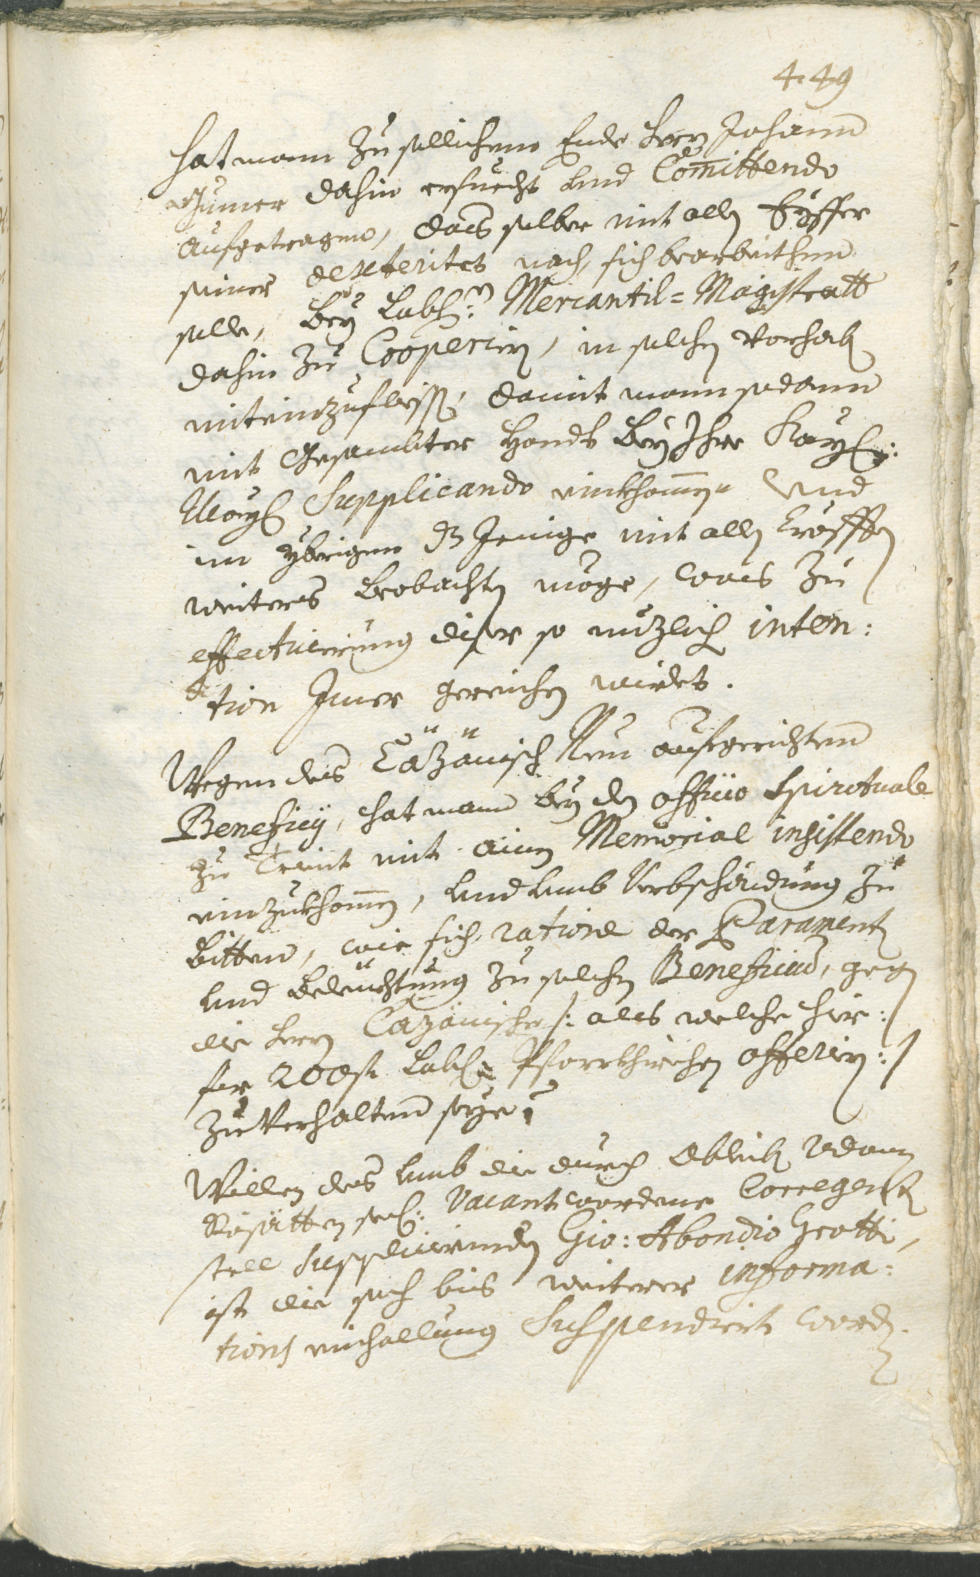 449
hat mann zu sollichem Ende herrn Johann
Gumer dahin ersuecht und Committendo
aufgetragen, das selber mit allen Eyffer
seiner dexteritet nach, sich bearbeithen
solle, bey Lobl: Mercantil-Magistratt
dahin zu Cooperiern, in solchen Vorhab
miteinzufliessen, damit mann sodann
mit Gesambter Handt bey Ihro Kayl:
May: Supplicando einkhommen und
im ybrigen dz Jenige mit allen Kräfften
weiters beobachten möge, was zu
effectuierung diser so nuzlich inten:
tion Imer gereichen würdet.
Wegen des Cazänisch Neu aufgerichten
Beneficij, hat mann bey den officio Spirituale
zu Trient mit ainem Memorial insistendo
einzukhommen, und umb Verbschaidung zu
bitten, wie sich ratione der Paramenten
und beleuchtung zu solchen Beneficio, gegen
die herrn Cazänische /: als welche hie:
für 200 fl. Lobl: Pfarrkhirchen offeriern :/
zu Verhalten seye
Willen des umb die durch Ableib Adam
seel: Vacant wordene Corregent
stell Supplicierenden Gio: Abondio Grotti,
ist die sach bis weiterer informa:
tions einhollung Suspendiert worden.